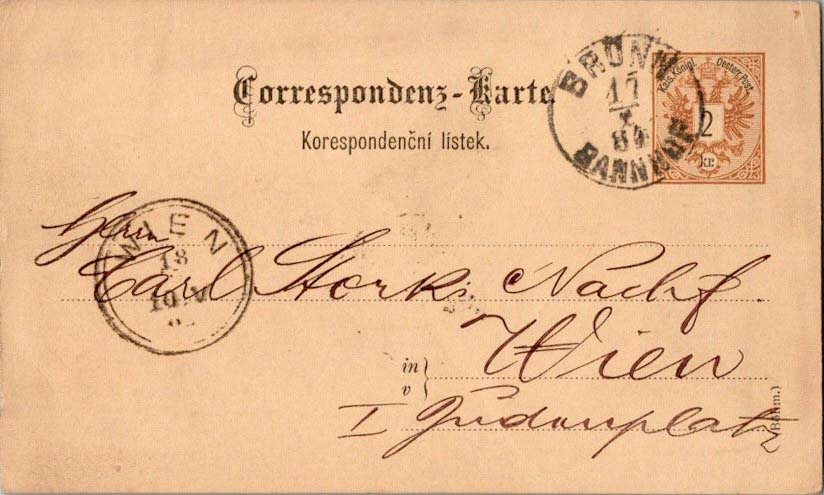 Correspondenz-Karte.
Korespondenční lístek.
Kais. Königl. Oesterr. Post.
2
kr.
BRÜNN
17
BAHNHOF
WIEN
18
Herrn
Carl Stork's Nachf.
in
v
Wien
I Judenplatz
(Böhm.)